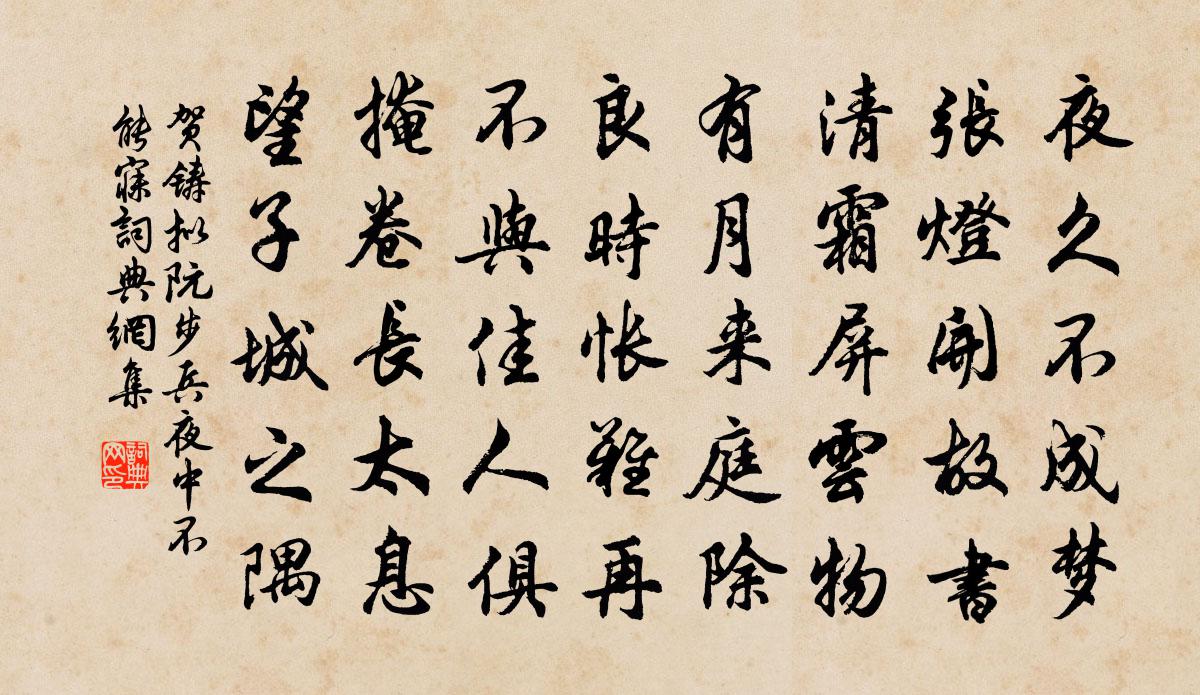 夜久不成梦
張燈開故書
清霜屏雲物
有月来庭除
良時怅難再
不與佳人俱
掩卷長太息
望子城之隅
贺鑄拟阮步兵夜中不
能寐詞典網集
詞典
网印